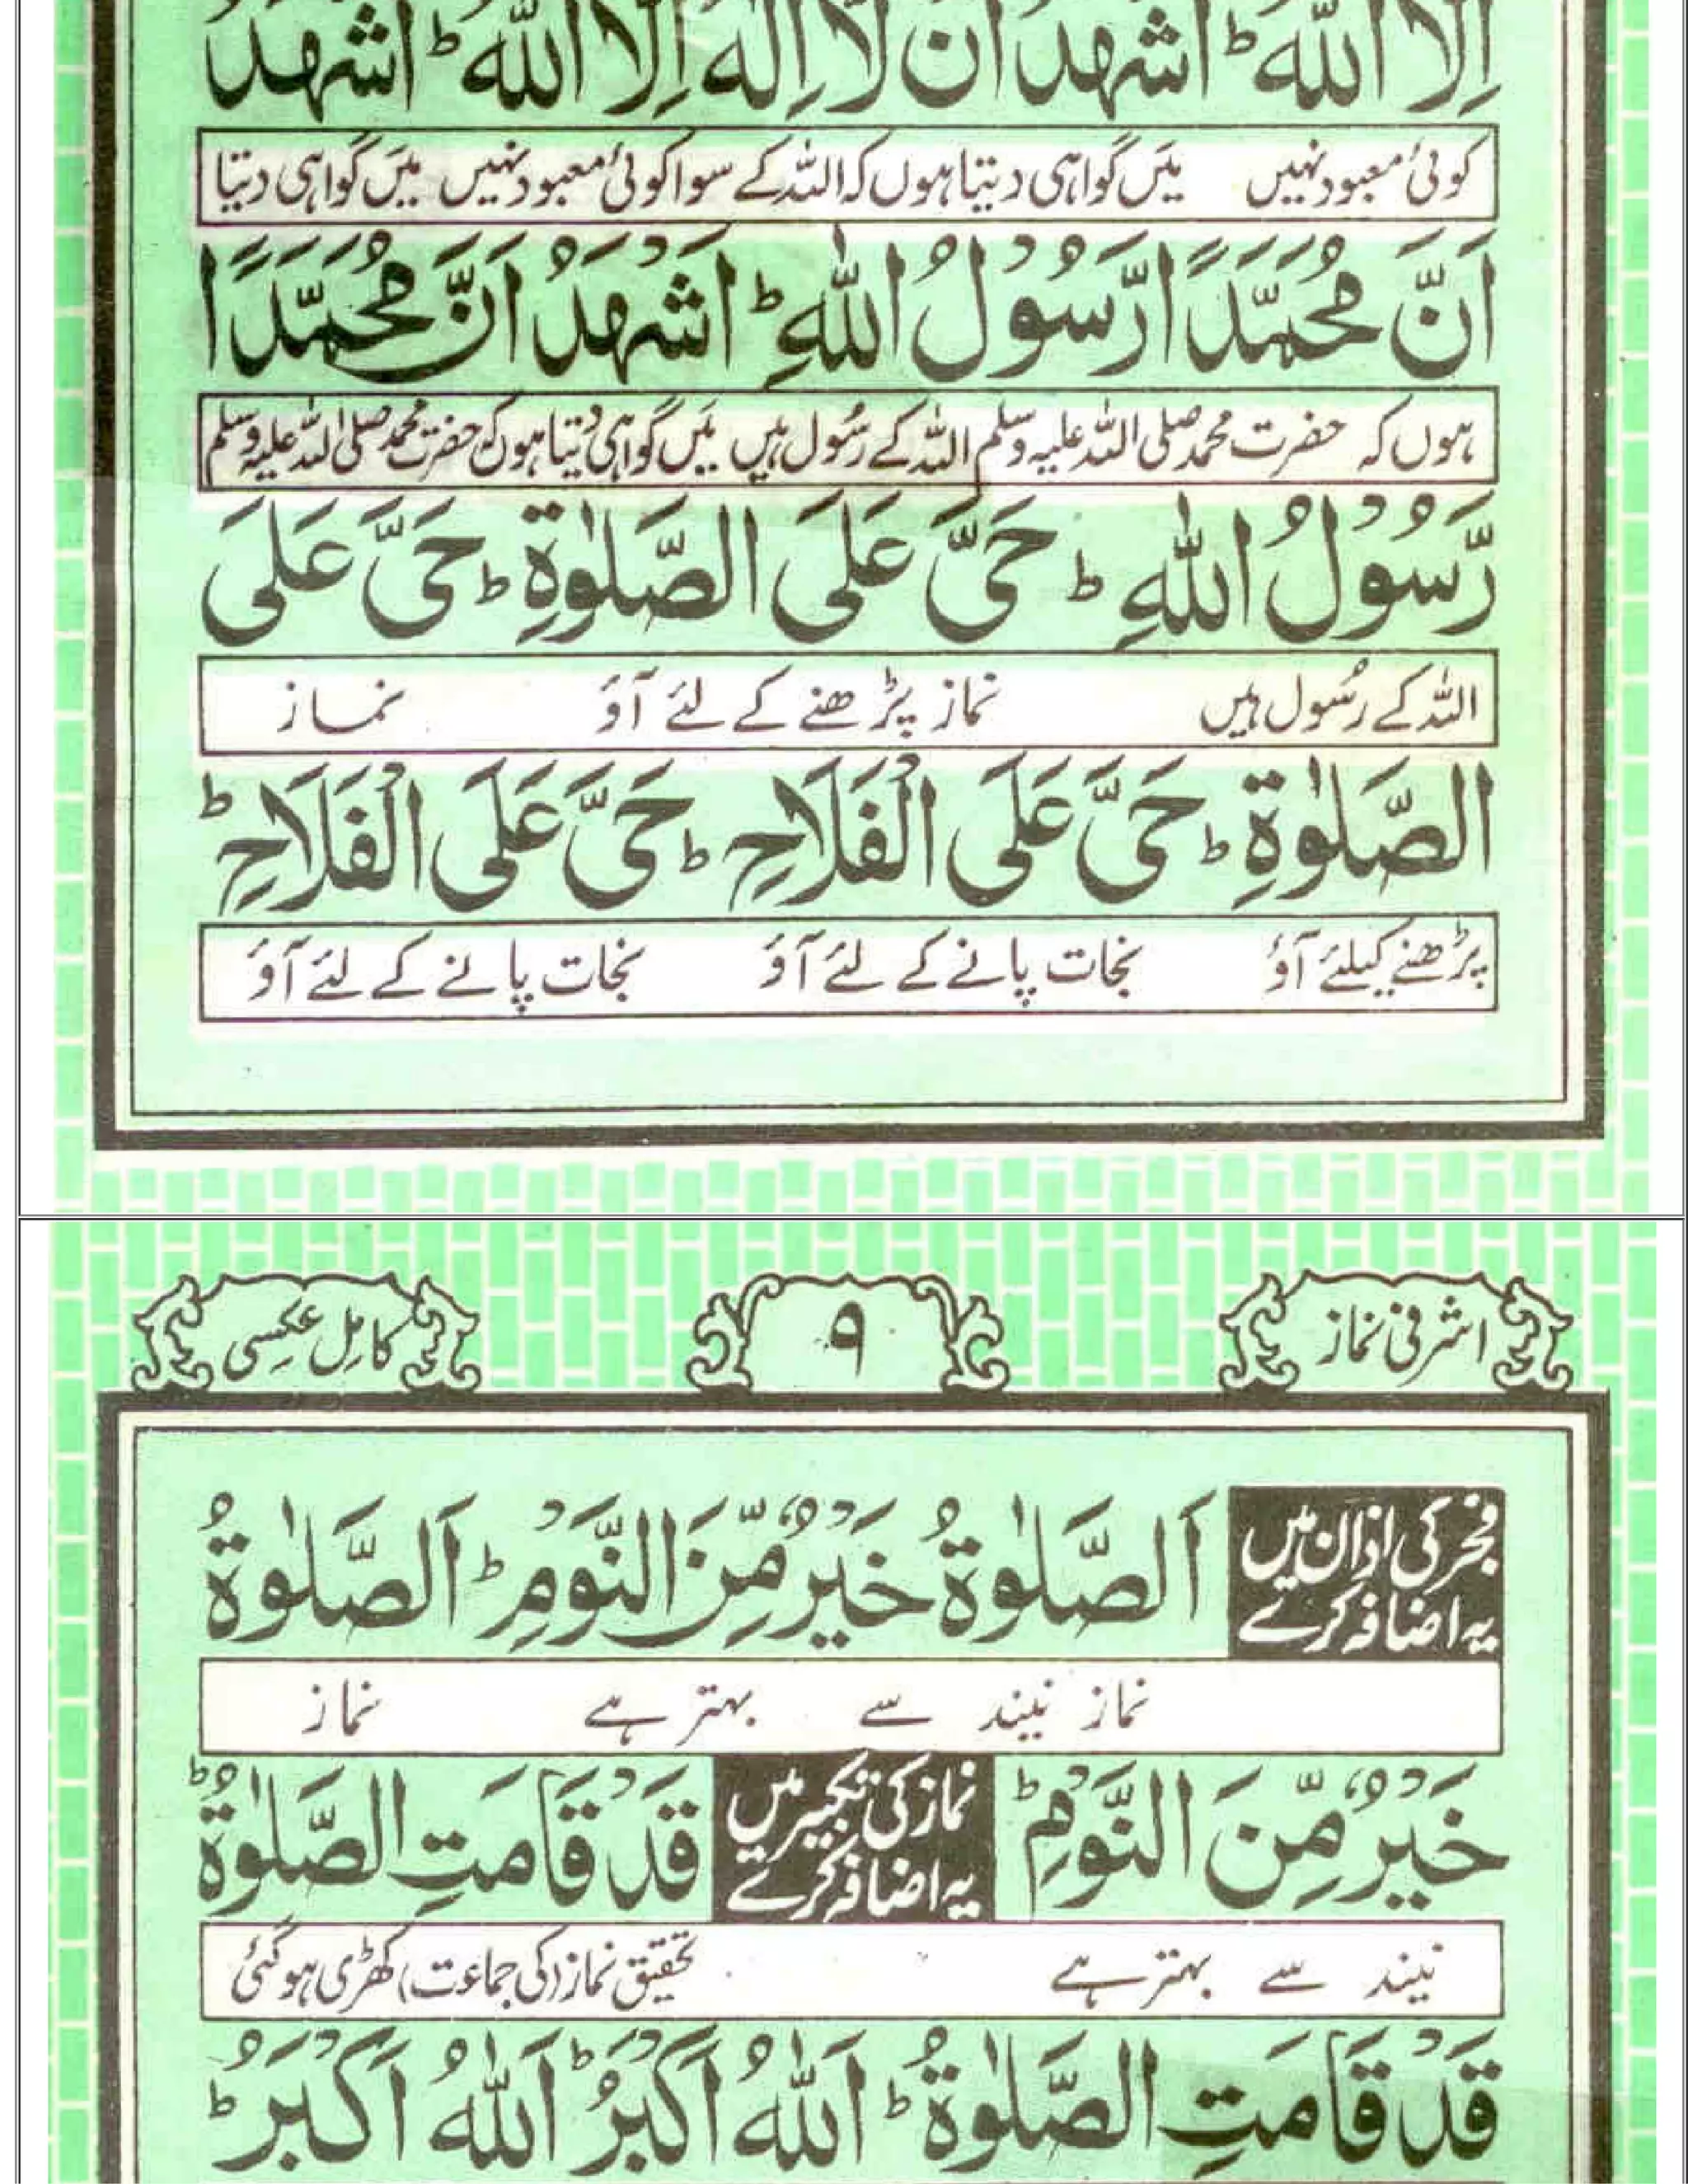 اِلَّا اللّٰهُ ؕ اَشْهَدُ اَنْ لَّا اِلٰهَ اِلَّا اللّٰهُ ؕ اَشْهَدُ
کوئی معبود نہیں میں گواہی دیتا ہوں کہ اللہ کے سوا کوئی معبود نہیں میں گواہی دیتا
اَنَّ مُحَمَّدًا رَّسُوْلُ اللّٰهِ ؕ اَشْهَدُ اَنَّ مُحَمَّدًا
ہوں کہ حضرت محمد صلی اللہ علیہ وسلم اللہ کے رسُول ہیں میں گواہی دیتا ہوں کہ حضرت محمد صلی اللہ علیہ وسلم
رَّسُوْلُ اللّٰهِ ؕ حَیَّ عَلَی الصَّلٰوةِ ؕ حَیَّ عَلَی
اللہ کے رسُول ہیں نماز پڑھنے کے لئے آؤ نماز
الصَّلٰوةِ ؕ حَیَّ عَلَی الْفَلَاحِ ؕ حَیَّ عَلَی الْفَلَاحِ ؕ
پڑھنے کیلئے آؤ نجات پانے کے لئے آؤ نجات پانے کے لئے آؤ
اشرفی نماز ۹ کامِل عکسی
فجر کی اذان میں
یہ اضافہ کرے
اَلصَّلٰوةُ خَیْرٌ مِّنَ النَّوْمِ ؕ اَلصَّلٰوةُ
نماز نیند سے بہتر ہے نماز
خَیْرٌ مِّنَ النَّوْمِ ؕ
نماز کی تکبیر میں
یہ اضافہ کرے
قَدْ قَامَتِ الصَّلٰوةُ ؕ
نیند سے بہتر ہے تحقیق نماز (کی جماعت) کھڑی ہو گئی
قَدْ قَامَتِ الصَّلٰوةُ ؕ اَللّٰهُ اَكْبَرُ ؕ اَللّٰهُ اَكْبَرُ ؕ